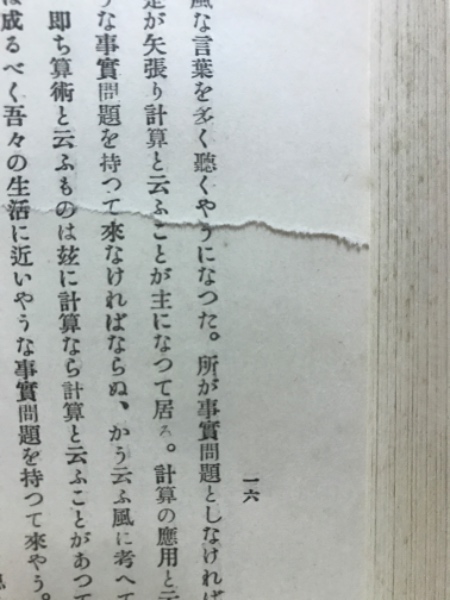 風な言葉を多く聽くやうになつた。所が事實問題としなければ
が矢張り計算と云ふことが主になつて居る。計算の應用と云
な事實問題を持つて來なければならぬ、かう云ふ風に考へて
即ち算術と云ふものは玆に計算なら計算と云ふことがあつて
成るべく吾々の生活に近いやうな事實問題を持つて來やう。
一六